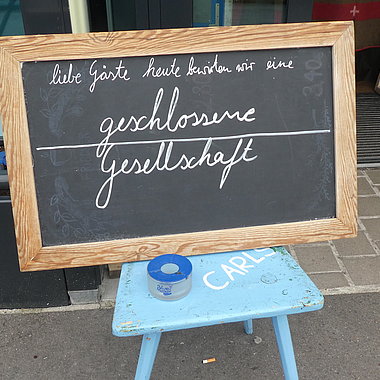 liebe Gäste heute bewirten wir eine
geschlossene
Gesellschaft
CARL